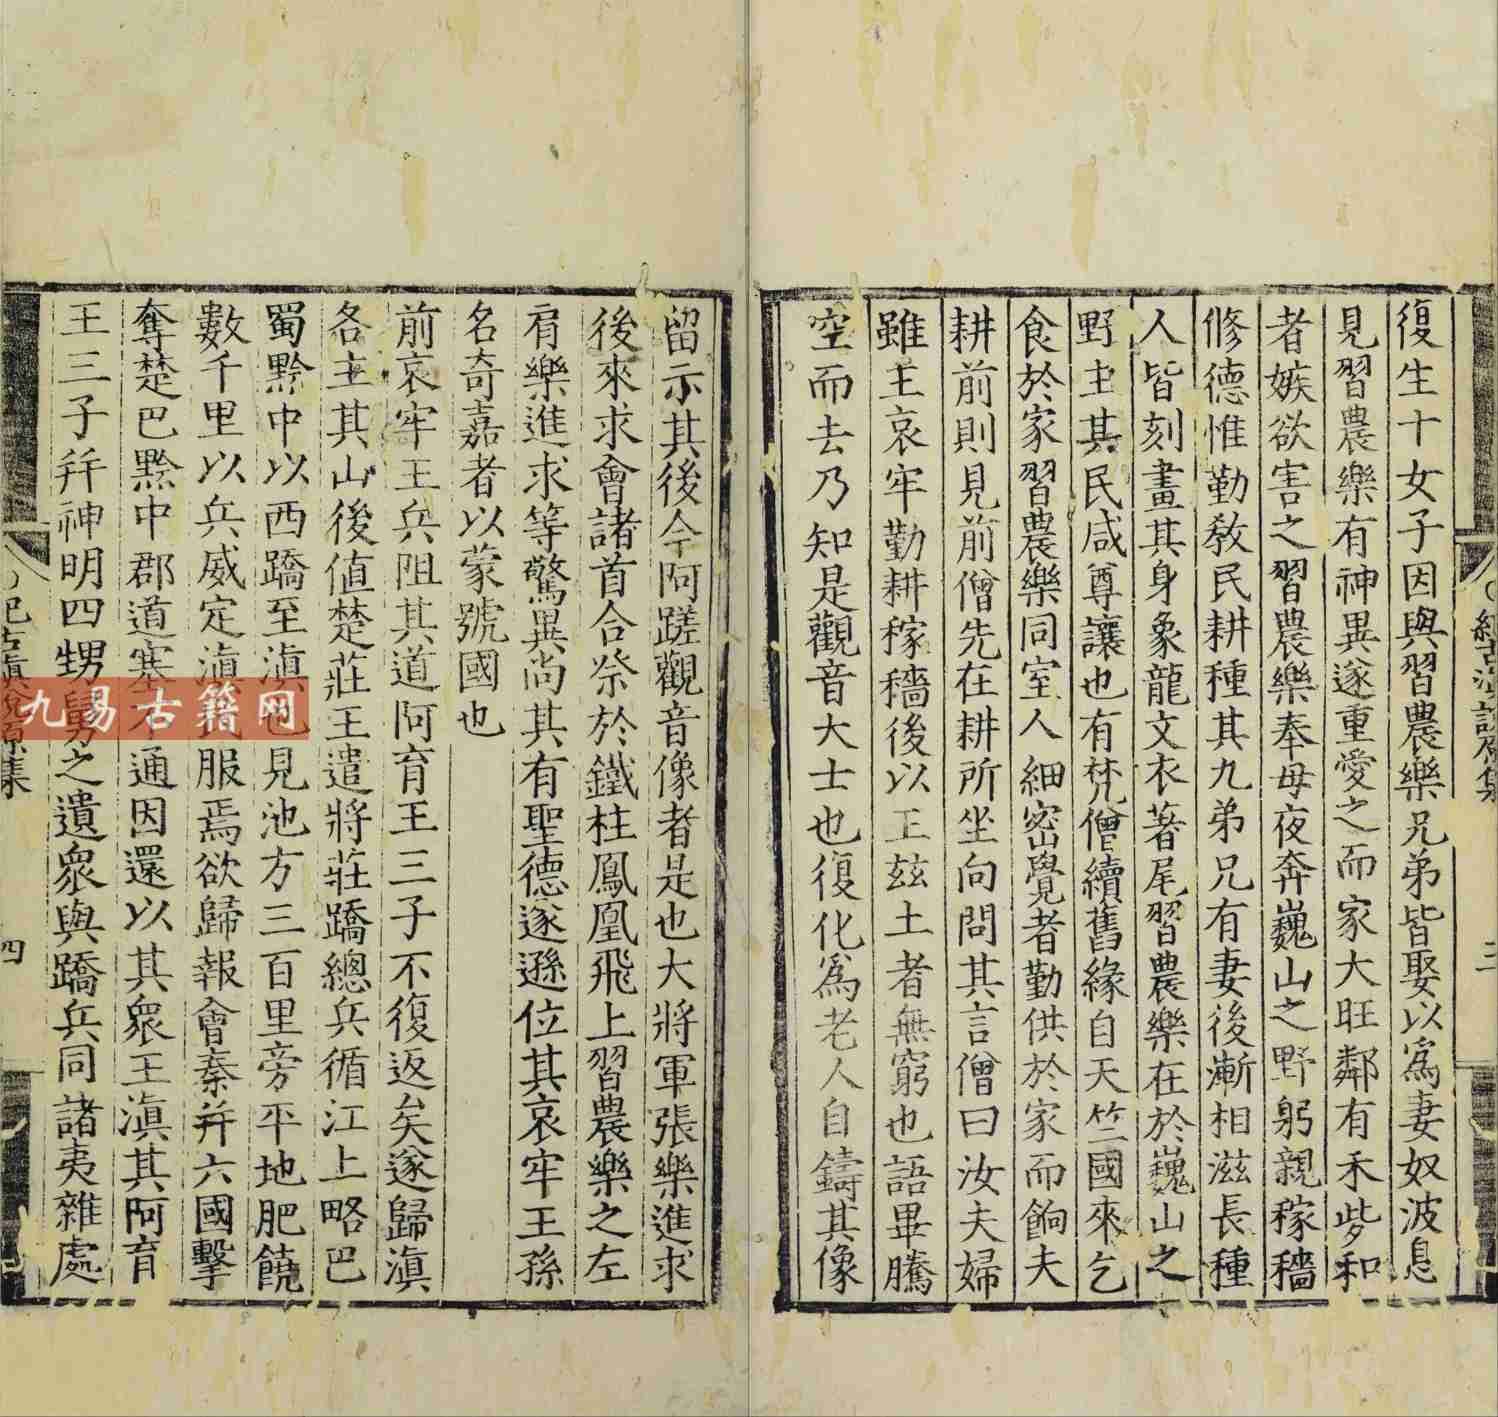 復生十女子因與習農樂兄弟皆娶以為妻奴波息
見習農樂有神異遂重愛之而家大旺鄰有禾歩和
者嫉欲害之習農樂奉母夜奔巍山之野躬親稼穡
修德惟勤教民耕種其九弟兄有妻後漸相滋長種
人皆刻畫其身象龍文衣著尾習農樂在於巍山之
野主其民咸尊讓也有梵僧續舊緣自天竺國來乞
食於家習農樂同室人細密覺者勤供於家而餉夫
耕前則見前僧先在耕所坐向問其言僧曰汝夫婦
雖主哀牢勤耕稼穡後以王玆土者無窮也語畢騰
空而去乃知是觀音大士也復化為老人自鑄其像
留示其後今阿蹉觀音像者是也大將軍張樂進求
後來求會諸首合祭於鐵柱鳳凰飛上習農樂之左
肩樂進求等驚異尚其有聖德遂遜位其哀牢王孫
名奇嘉者以蒙號國也
前哀牢王兵阻其道阿育王三子不復返矣遂歸滇
各主其山後值楚莊王遣將莊蹻總兵循江上略巴
蜀黔中以西蹻至滇也見池方三百里旁平地肥饒
數千里以兵威定滇民服焉欲歸報會秦并六國擊
奪楚巴黔中郡道塞不通因還以其衆王滇其阿育
王三子并神明四甥舅之遺衆與蹻兵同諸夷雜處
紀古滇說原集
二
四
九易古籍网